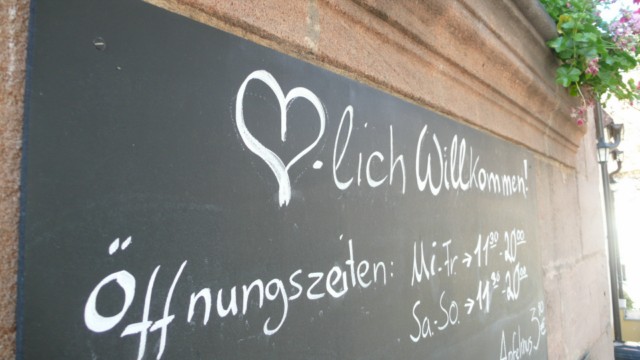 ♥.lich Willkommen!
Öffnungszeiten: Mi-Fr. → 11³⁰-20⁰⁰
Sa-So. → 11³⁰-20⁰⁰